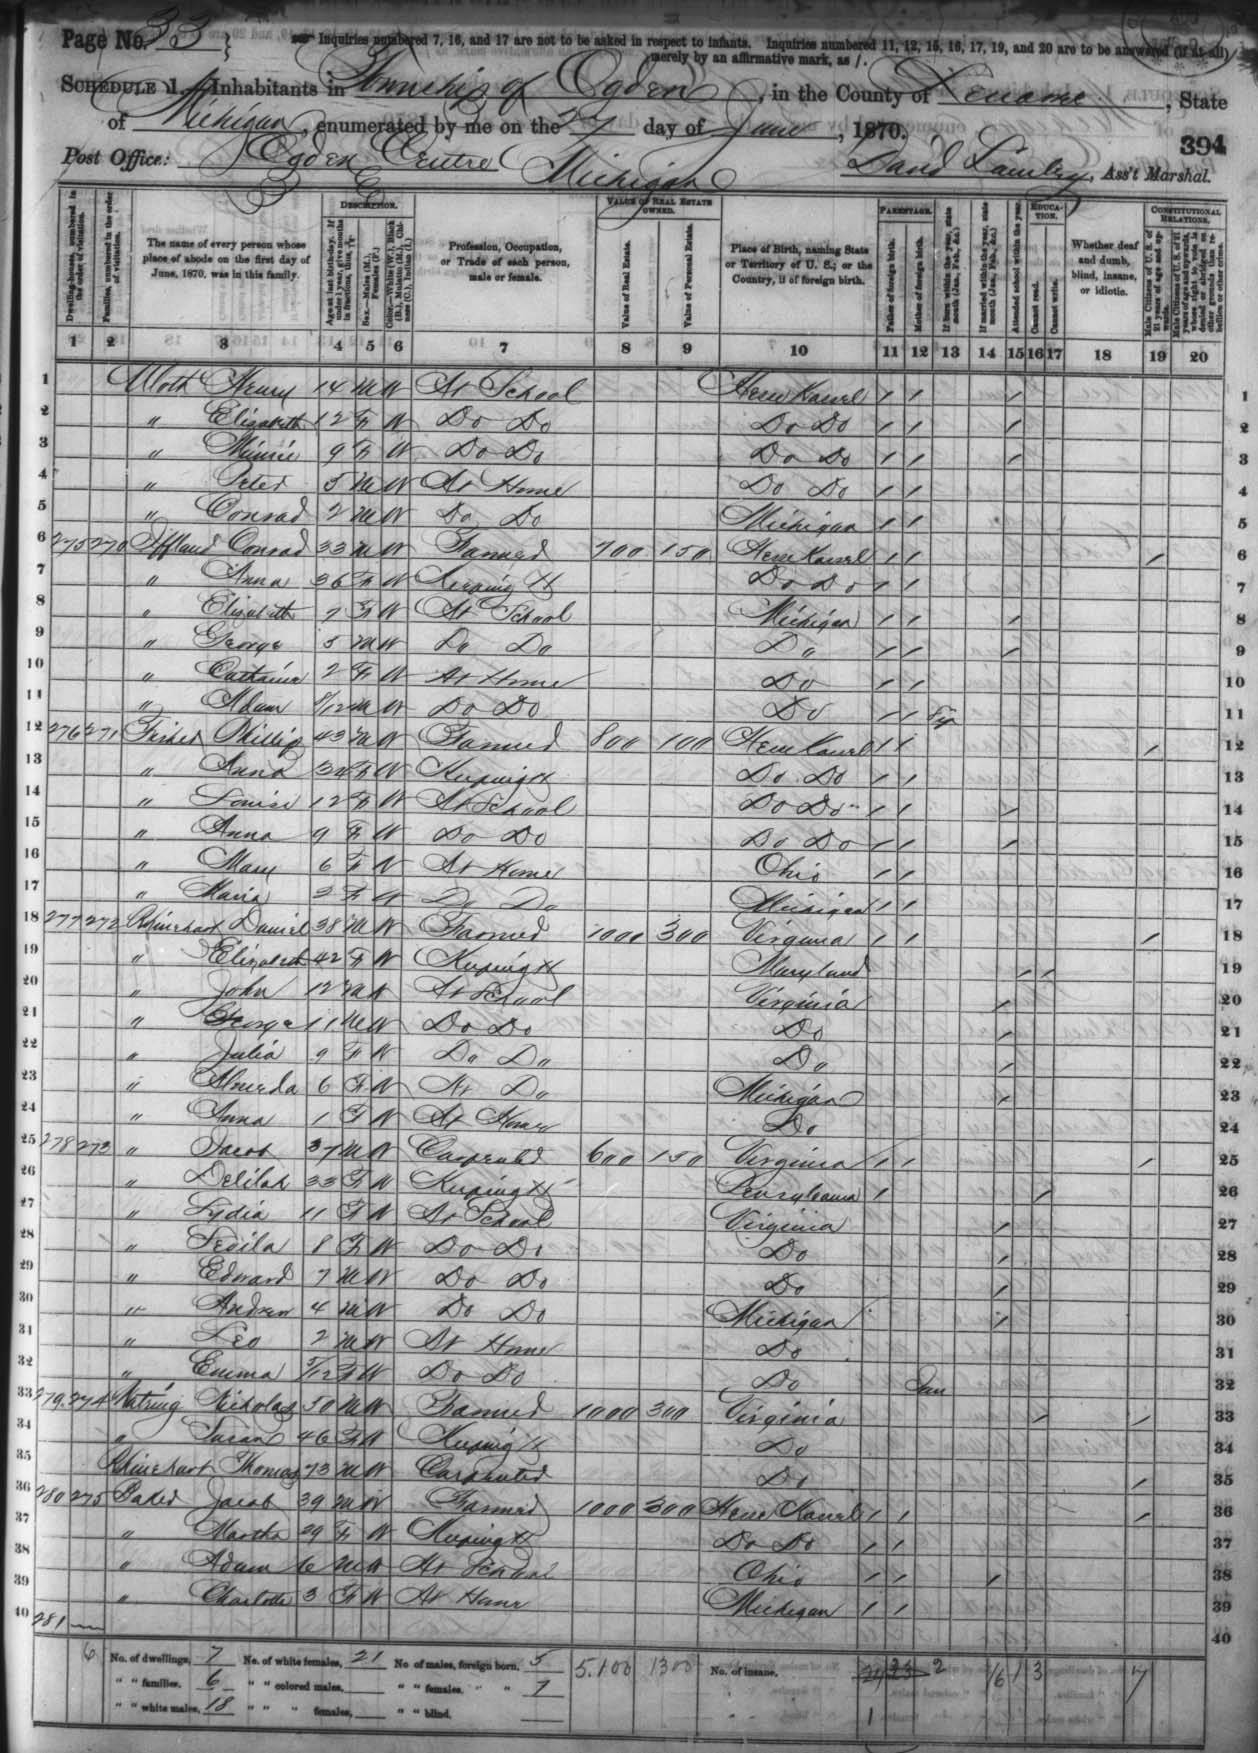 Page No. 33
Inquiries numbered 7, 16, and 17 are not to be asked in respect to infants. Inquiries numbered 11, 12, 15, 16, 17, 19, and 20 are to be answered (if at all) merely by an affirmative mark, as /.
SCHEDULE 1.—Inhabitants in Township of Ogden, in the County of Lenawe, State
of Michigan, enumerated by me on the 27 day of June, 1870.
394
Post Office: Ogden Centre Michigan David , Ass't Marshal.
Dwelling-houses, numbered in the order of visitation.
Families, numbered in the order of visitation.
The name of every person whose place of abode on the first day of June, 1870, was in this family.
DESCRIPTION.
Age at last birth-day. If under 1 year, give months in fractions, thus,
Sex.—Males (M.), Females (F.)
Color.—White (W.), Black (B.), Mulatto (M.), Chinese (C.), Indian (I.)
Profession, Occupation, or Trade of each person, male or female.
VALUE OF REAL ESTATE OWNED.
Value of Real Estate.
Value of Personal Estate.
Place of Birth, naming State or Territory of U. S.; or the Country, if of foreign birth.
PARENTAGE.
Father of foreign birth.
Mother of foreign birth.
If born within the year, state month (Jan., Feb., &c.)
If married within the year, state month (Jan., Feb., &c.)
EDUCATION.
Attended school within the year.
Cannot read.
Cannot write.
Whether deaf and dumb, blind, insane, or idiotic.
CONSTITUTIONAL RELATIONS.
Male Citizens of U. S. of 21 years of age and upwards.
Male Citizens of U. S. of 21 years of age and upwards, whose right to vote is denied or abridged on other grounds than rebellion or other crime.
1 2 3 4 5 6 7 8 9 10 11 12 13 14 15 16 17 18 19 20
1 Henry 14 M W At School / / / 1
2 " Elizabeth 12 F W Do Do Do Do / / / 2
3 " Minnie 9 F W Do Do Do Do / / / 3
4 " Peter 5 M W At Home Do Do / / 4
5 " Conrad 2 M W Do Do Michigan / / 5
6 275 270 Iffland Conrad 33 M W Farmer 700 150 / / / 6
7 " Anna 36 F W Keeping H Do Do / / 7
8 " Elizabeth 7 F W At School Michigan / / / 8
9 " George 5 M W Do Do Do / / / 9
10 " 2 F W At Home Do / / 10
11 " Adam /12 M W Do Do Do / / 11
12 276 271 Fisher Phillip 43 M W Farmer 800 100 / / / 12
13 " Anna F W Keeping H Do Do / / 13
14 " Louise 12 F W At School Do Do / / / 14
15 " Anna 9 F W Do Do Do Do / / / 15
16 " Mary 6 F W At Home Ohio / / 16
17 " Maria 2 F W Do Do Michigan / / 17
18 277 272 Rhinehart Daniel 38 M W Farmer 1000 300 Virginia / / / 18
19 " Elizabeth 42 F W Keeping H Maryland / / 19
20 " John 12 M W At School Virginia / 20
21 " George 11 M W Do Do Do / 21
22 " Julia 9 F W Do Do Do / 22
23 " Almeda 6 F W At Do Michigan / 23
24 " Anna 1 F W At Home Do 24
25 278 273 " Jacob 37 M W Carpenter 600 150 Virginia / / / 25
26 " Delilah 33 F W Keeping H Pensylvania / / 26
27 " Lydia 11 F W At School Virginia / 27
28 " 8 F W Do Do Do / 28
29 " Edward 7 M W Do Do Do / 29
30 " Andrew 4 M W Do Do Michigan / 30
31 " Leo 2 M W At Home Do 31
32 " Emma /12 F W Do Do Do Jan 32
33 279 274 Nicholas 50 M W Farmer 1000 300 Virginia / / 33
34 " Susan 46 F W Keeping H Do 34
35 Rhinehart Thomas 73 M W Carpenter Do / 35
36 280 275 Baker Jacob 39 M W Farmer 1000 300 / / / 36
37 " Martha 29 F W Keeping H Do Do / / 37
38 " Adam 6 M W At School Ohio / / / 38
39 " Charlotte 3 F W At Home Michigan / / 39
40 281 40
6 No. of dwellings, 7 No. of white females, 21 No of males, foreign born, 5 5,100 1300 No. of insane, 2 16 1 3 7
" " families, 6 " " colored males, " " females, " " 7
" " white males, 18 " " " females, " " blind. 1